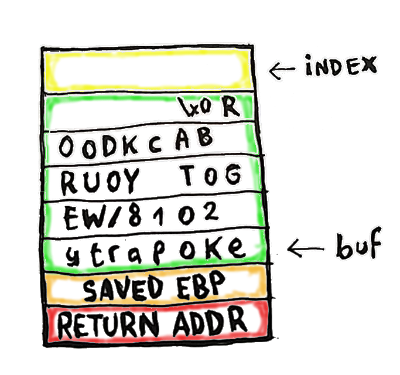 ← INDEX
\x0 R
OODK C A B
RUOY TOG
EW/8102
ytrapoke
← buf
SAVED EBP
RETURN ADDR